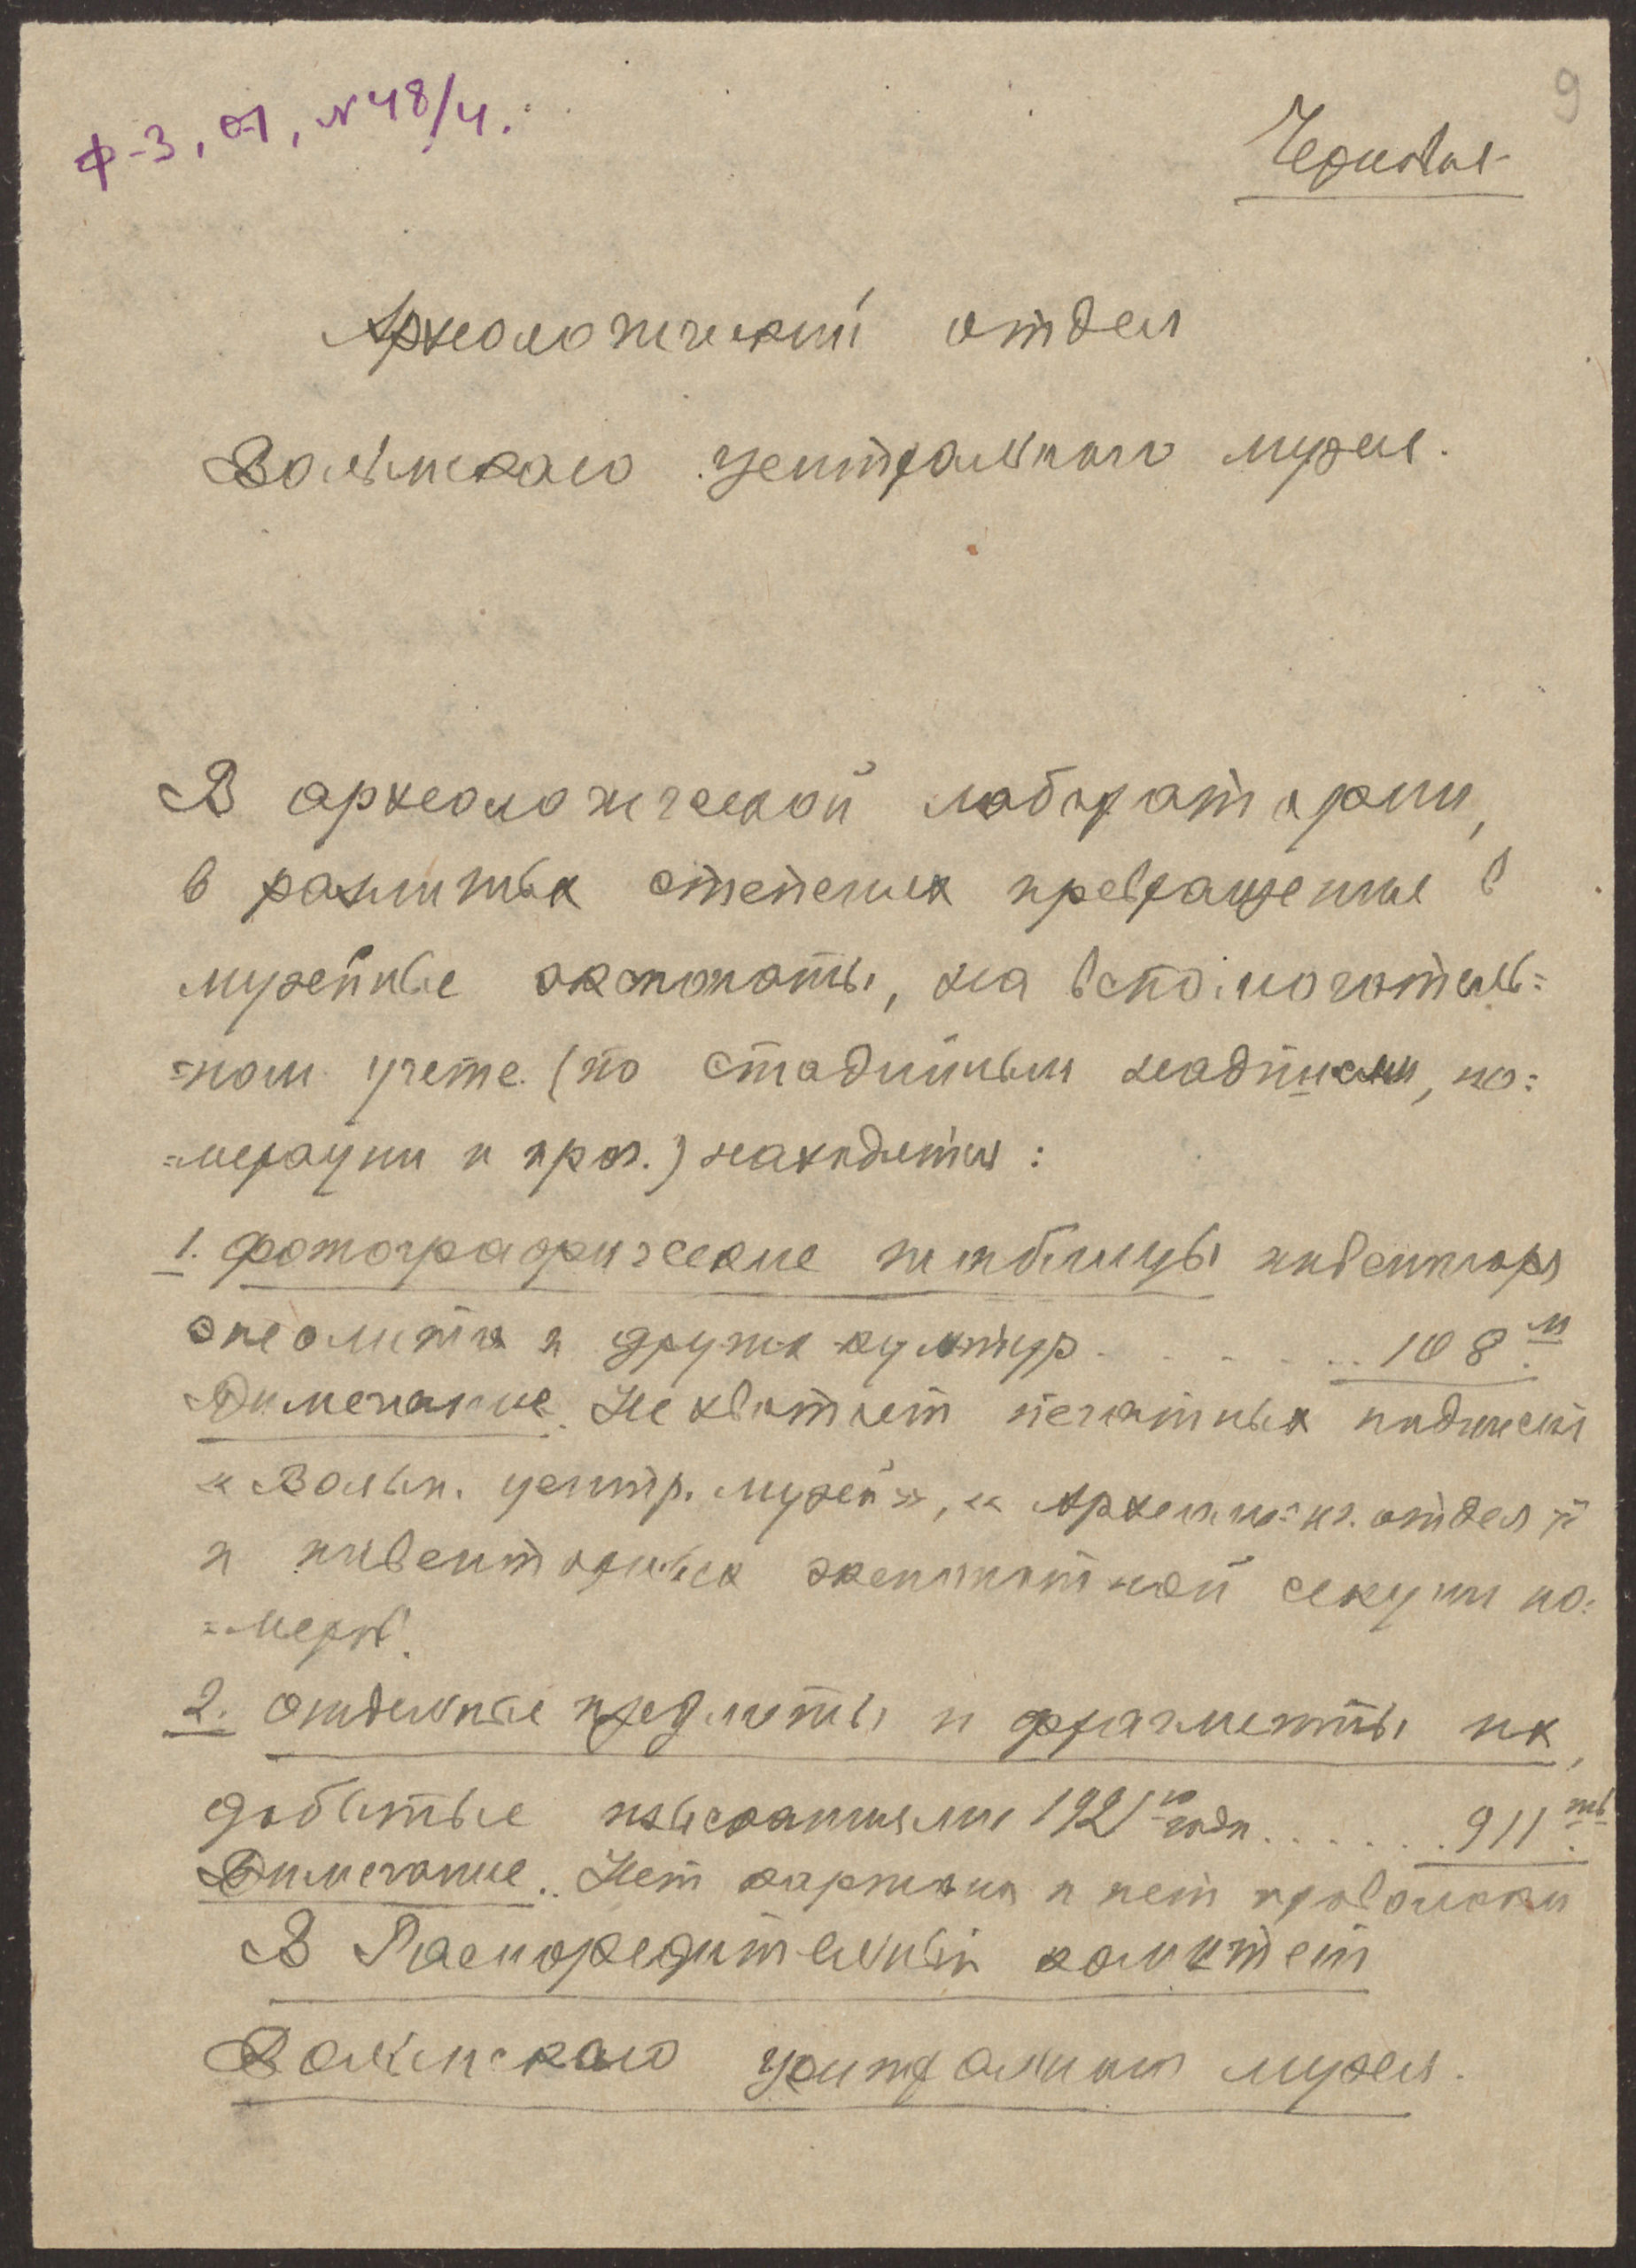 9
Ф-3, О1, №48/4.
Черновая
Археологический отдел
Волынского центрального музея.
В археологической лаборатории,
в различных степенях превращения в
музейные экспонаты, на вспомогатель=
=ном учете (по стадийным надписям, но=
=мерации и проч.) находятся:
1. Фотографические таблицы инвентаря
энеолита и других культур. . . . . . . 108 м
Примечание. Не хватает печатных надписей
«Волын. центр. музей», «Археологич. отдел»
и инвентарных экспонатной секции но=
=меров.
2. Отдельные предметы и фрагменты их,
добытые изысканиями 1921го года. . . . . . . 911 ть
Примечание. Нет картона и нет проволоки
В Распорядительный комитет
Волынского центрального музея.